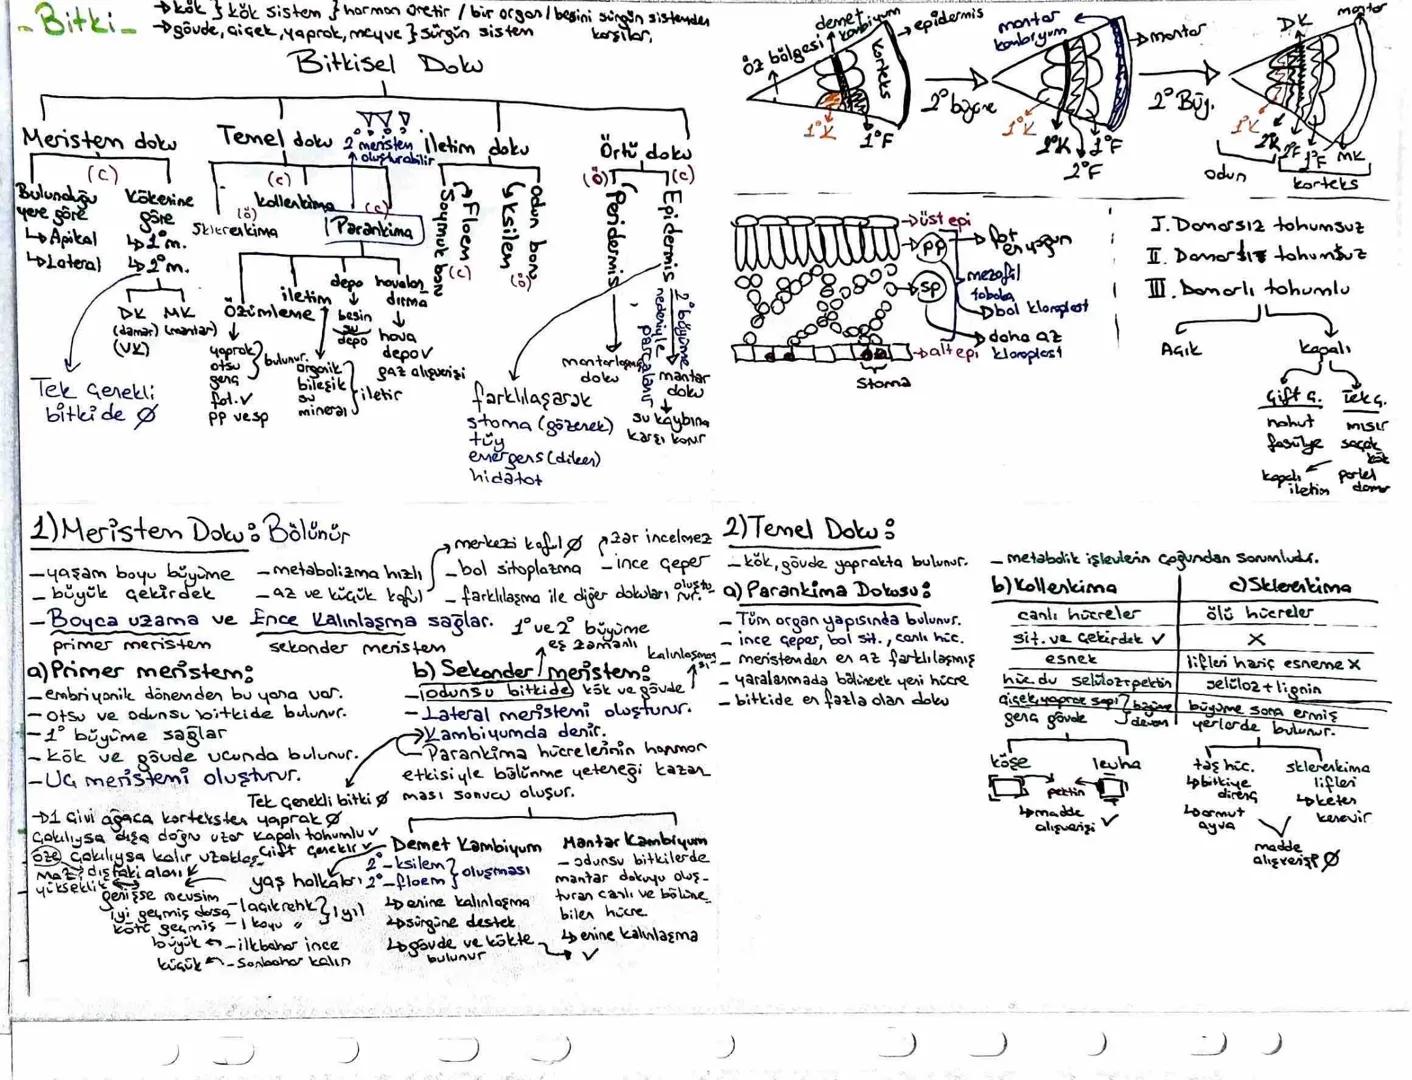 - Bitki -
→kök } kök sistem } hormon üretir / bir organ / besini sürgün sistemden karşılar.
→gövde, çiçek, yaprak, meyve } sürgün sistem
Bitkisel Doku
Meristem doku
(c)
Bulunduğu yere göre
↳Apikal
↳Lateral
Kökenine göre
↳1°m.
↳2°m.
DK (damar) (VK)
MK (mantar)
Tek Çenekli bitkide Ø
Temel doku
2° meristem oluşturabilir
(ö)
Sklerenkima
(c)
kollenkima
(c)
Parankima
Özümleme
yaprak
otsu
genç
bulunur.
fot.✓
pp ve sp
iletim
organik bileşik
su
mineral
iletir
depo
besin
su
depo
havalandırma
hava depo✓
gaz alışverişi
İletim doku
Floem Soymuk boru (c)
Ksilem Odun boru (ö)
Örtü doku
(ö)
Peridermis
mantarlaşmış doku
(c)
Epidermis
2° büyüme nedeniyle parçalanır
mantar doku
su kaybına karşı korur
farklılaşarak
stoma (gözenek)
tüy
emergens (diken)
hidatot
öz bölgesi
demet kambiyum
epidermis
Korteks
1°K
1°F
2° büyüme
mantar kambiyum
mantar
1°K
2°K
2°F
1°F
2° Büy.
DK
mantar
1°K
2°K
2°F
1°F
MK
odun
korteks
→üst epi
→pp → fot en yoğun
→sp
mezofil tabaka
→bol kloroplast
→daha az kloroplast
→alt epi
Stoma
I. Damarsız tohumsuz
II. Damarlı tohumsuz
III. Damarlı tohumlu
Açık
Kapalı
Çift ç.
nohut
fasülye
kapalı iletim
Tek ç.
mısır
saçak kök
paralel damar
1) Meristem Doku: Bölünür
- yaşam boyu büyüme
- büyük çekirdek
- metabolizma hızlı
- az ve küçük koful
→merkezi koful Ø
- bol sitoplazma
→zar incelmez
- ince çeper
- farklılaşma ile diğer dokuları oluşturur.
- Boyca uzama ve Ence Kalınlaşma sağlar.
primer meristem
sekonder meristem
1° ve 2° büyüme eş zamanlı
a) Primer meristem:
- embriyonik dönemden bu yana var.
- otsu ve odunsu bitkide bulunur.
- 1° büyüme sağlar
- kök ve gövde ucunda bulunur.
- Uç meristemi oluşturur.
b) Sekonder meristem:
- odunsu bitkide kök ve gövde kalınlaşması
- Lateral meristemi oluşturur.
→Kambiyumda denir.
→Parankima hücrelerinin hormon etkisiyle bölünme yeteneği kazanması sonucu oluşur.
Tek Çenekli bitki Ø
kapalı tohumlu ✓
Çift Çenekli ✓
Demet Kambiyum
2°-ksilem
2°-floem
oluşması
↳enine kalınlaşma
↳sürgüne destek
↳gövde ve kökte bulunur
Mantar Kambiyum
- odunsu bitkilerde mantar dokuyu oluşturan canlı ve bölünebilen hücre
↳enine kalınlaşma
✓
→D1 Çivi ağaca korteksten
yaprak Ø
çakılıysa dışa doğru uzar
öze çakılıysa kalır
yükseklik
yaş halkaları
genişse mevsim iyi geçmiş darsa kötü geçmiş
- 1 açık renk
- 1 koyu "
1 yıl
büyük ← - ilkbahar ince
küçük ← - Sonbahar kalın
2) Temel Doku:
- kök, gövde yaprakta bulunur.
- metabolik işlevlerin çoğundan sorumludur.
a) Parankima Dokusu:
- Tüm organ yapısında bulunur.
- ince çeper, bol sit., canlı hüc.
- meristemden en az farklılaşmış
- yaralanmada bölünerek yeni hücre
- bitkide en fazla olan doku
b) Kollenkima
c) Sklerenkima
canlı hücreler
ölü hücreler
sit. ve çekirdek ✓
X
esnek
lifleri hariç esneme X
hüc. du selüloz+pektin
selüloz + lignin
çiçek yaprak sapı genç gövde } büyüme devam
büyüme sona ermiş yerlerde bulunur.
köşe
levha
pektin
↳madde alışverişi ✓
taş hüc.
↳bitkiye direnç
↳armut ayva
sklerenkima lifleri
↳keten kenevir
madde alışverişi Ø